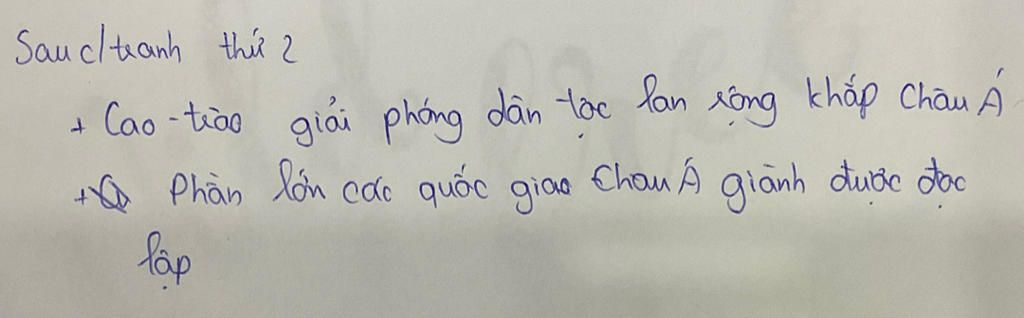 Sau c/tranh thứ 2
+ Cao-trào giải phóng dân tộc lan rộng khắp Châu Á
+ Phần lớn các quốc giao Châu Á giành được độc
lập